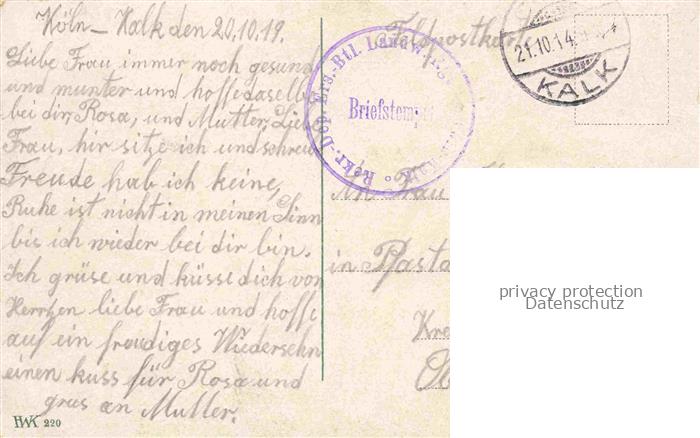 Köln-Kalk den 20.10.19.
Liebe Frau immer noch gesund
und munter und hoffe daselbe
bei dir, Rosa, und Mutter, Liebe
Frau, hir sitze ich und schreibe
Freude hab ich keine,
Ruhe ist nicht in meinen Sinn
bis ich wieder bei dir bin.
Ich grüse und küsse dich von
Herrtzen liebe Frau und hoffe
auf ein freudiges Wiedersehn
einen kuss für Rosa und
grus an Mutter.
HWK 220
Feldpostkarte
Rekr.-Dep. Ers.-Btl. Landw.
Briefstempel
21.10.14
KALK
An Frau
in Pfasta
Kre
Ob
privacy protection
Datenschutz